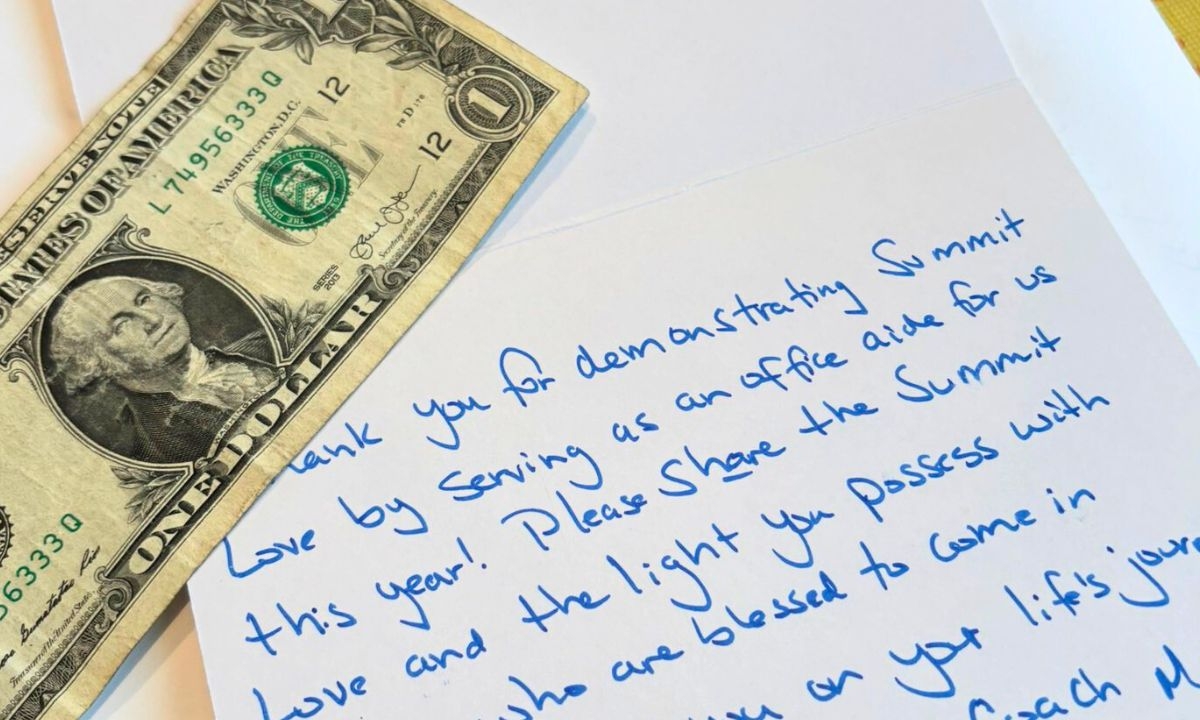 SERVE NOTE
STATES OF AMERICA
L 74956333 Q
12
WASHINGTON, D.C.
THE DEPARTMENT OF THE TREASURY
ONE
1
12
SERIES
2013
Secretary of the Treasury.
WASHINGTON
ONE DOLLAR
56333 Q
Treasurer of the United States.
ank you for demonstrating Summit
Love by serving as an office aide for us
this year! Please Share the Summit
Love and the light you possess with
who are blessed to come in
you on your life's jour
Coach M